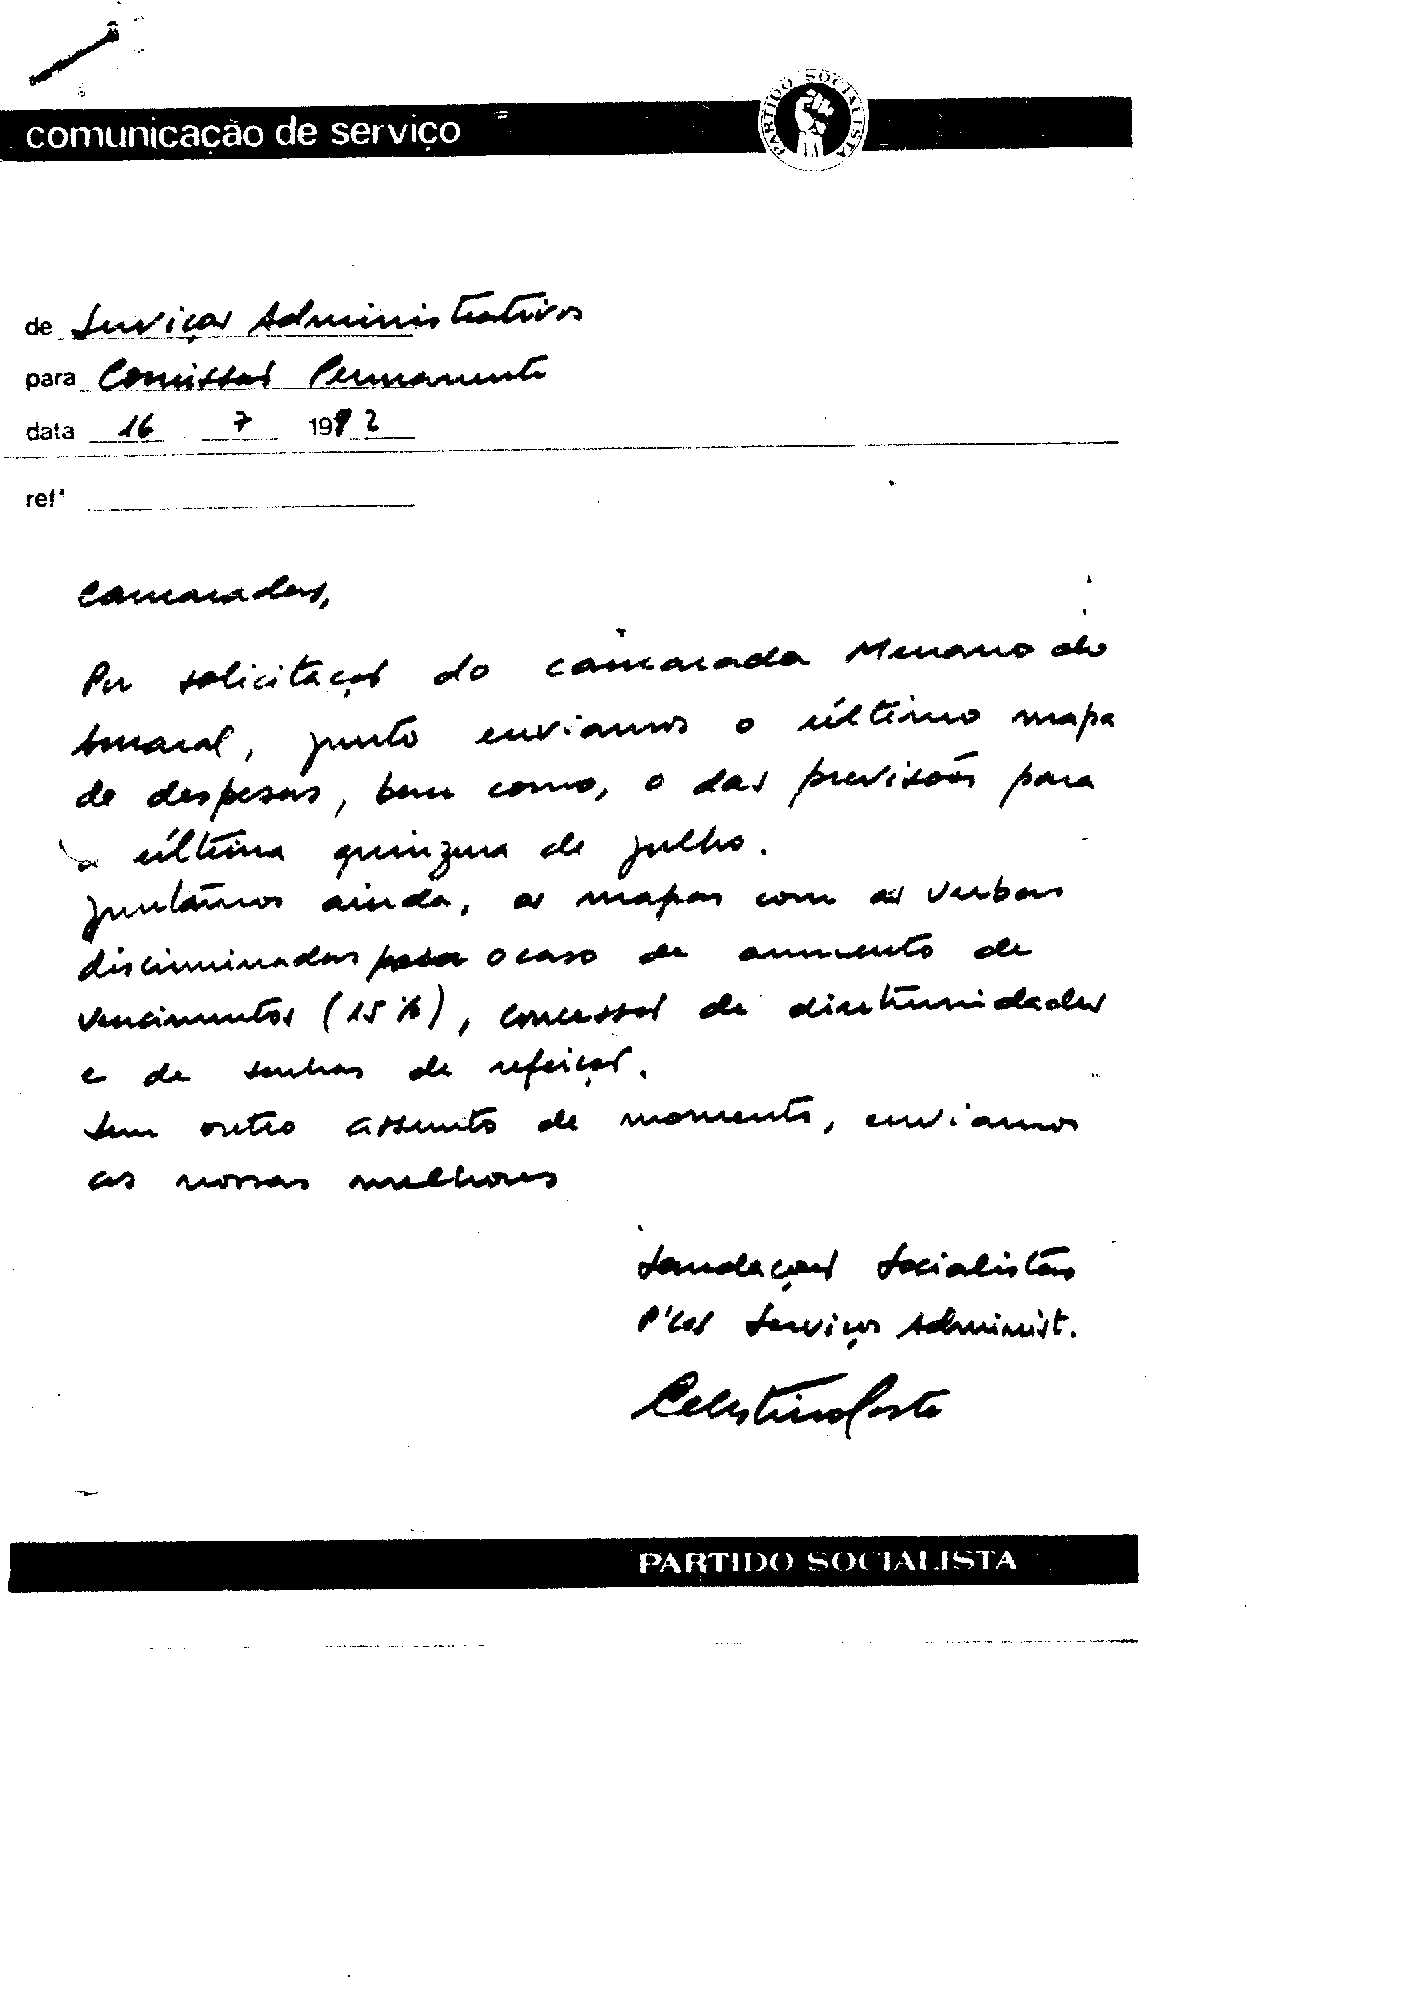 comunicação de serviço
PARTIDO SOCIALISTA
de Serviços Administrativos
para Comissão Permanente
data 16 7 1982
refª
Camaradas,
Por solicitação do camarada Menano do
Amaral, junto enviamos o último mapa
de despesas, bem como, o das previsões para
a última quinzena de julho.
Juntamos ainda, os mapas com as verbas
discriminadas para o caso de aumento de
vencimentos (15%), concessão de diuturnidades
e de senhas de refeição.
Sem outro assunto de momento, enviamos
as nossas melhores
Saudações Socialistas
P'los Serviços Administ.
Celestino Costa
PARTIDO SOCIALISTA